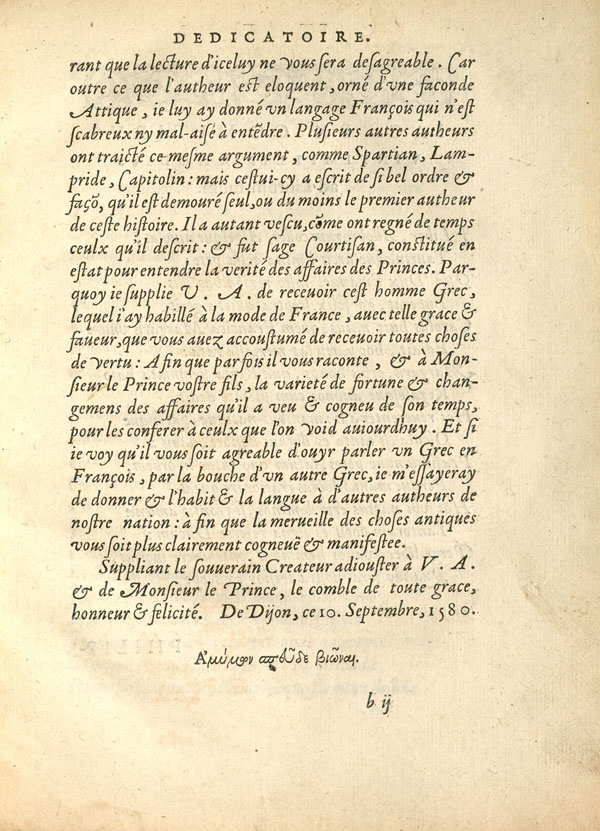 DEDICATOIRE.
rant que la lecture d'iceluy ne vous sera desagreable. Car
outre ce que l'autheur est eloquent, orné d'vne faconde
Attique, ie luy ay donné vn langage François qui n'est
scabreux ny mal-aisé à entẽdre. Plusieurs autres autheurs
ont traicté ce mesme argument, comme Spartian, Lam-
pride, Capitolin: mais cestui-cy a escrit de si bel ordre &
façõ, qu'il est demouré seul, ou du moins le premier autheur
de ceste histoire. Il a autant vescu, cõme ont regné de temps
ceulx qu'il descrit: & fut sage Courtisan, constitué en
estat pour entendre la verité des affaires des Princes. Par-
quoy ie supplie V. A. de receuoir cest homme Grec,
lequel i'ay habillé à la mode de France, auec telle grace &
faueur, que vous auez accoustumé de receuoir toutes choses
de vertu: A fin que par fois il vous raconte, & à Mon-
sieur le Prince vostre fils, la varieté de fortune & chan-
gemens des affaires qu'il a veu & cogneu de son temps,
pour les conferer à ceulx que l'on void auiourdhuy. Et si
ie voy qu'il vous soit agreable d'ouyr parler vn Grec en
François, par la bouche d'vn autre Grec, ie m'essayeray
de donner & l'habit & la langue à d'autres autheurs de
nostre nation: à fin que la merueille des choses antiques
vous soit plus clairement cogneuë & manifestee.
Suppliant le souuerain Createur adiouster à V. A.
& de Monsieur le Prince, le comble de toute grace,
honneur & felicité. De Dijon, ce 10. Septembre, 1580.
βιῶναι.
b ij